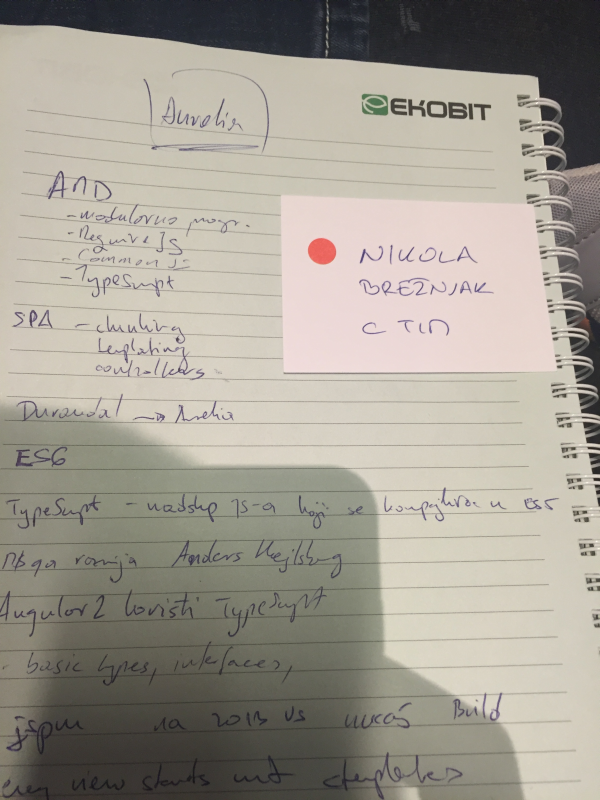 Aurelia
EKOBIT
AMD
- modularno progr.
- Require JS
- Common JS
- TypeScript
NIKOLA
BREŽNJAK
C TIM
SPA - chunking
templating
controllers
Durandal → Aurelia
ES6
TypeScript - nadskup JS-a koji se kompajlira u ES5
MS ga razvija Anders Hejlsberg
Angular2 koristi TypeScript
- basic types, interfaces,
jspm na 2013 VS moraš Build
view starts <template>